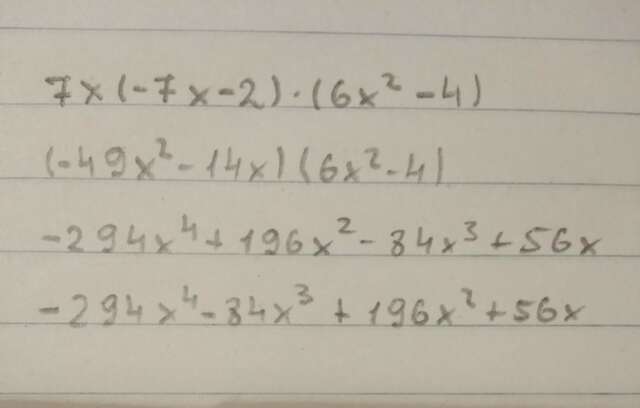 7x(-7x-2)·(6x²-4)
(-49x²-14x)(6x²-4)
-294x⁴+196x²-84x³+56x
-294x⁴-84x³+196x²+56x